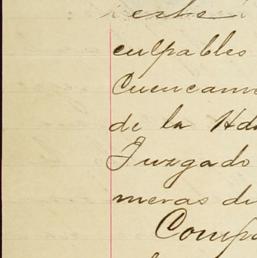 este
culpables
Cuencam
de la Hda
Juzgado
meras di
Compa